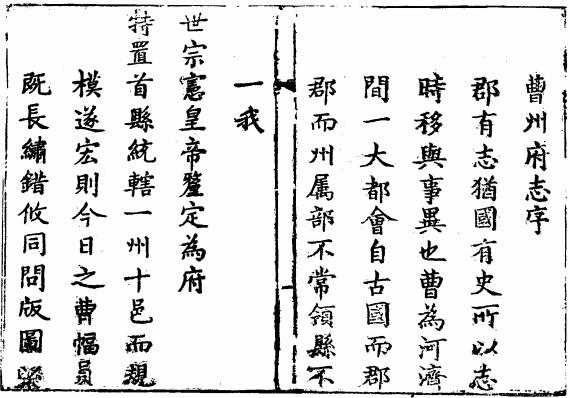 曹州府志序
郡有志猶國有史所以志
時移與事異也曹為河濟
間一大都會自古國而郡
郡而州属部不常領縣不
一我
世宗憲皇帝釐定為府
特置首縣統轄一州十邑而規
模遂宏則今日之曹幅員
既長繡錯攸同問版圖